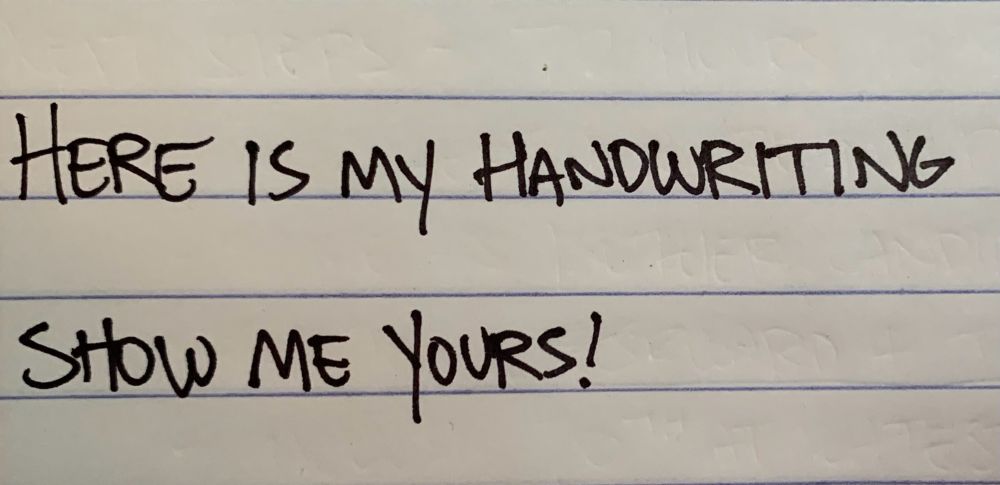 HERE IS MY HANDWRITING
SHOW ME YOURS!